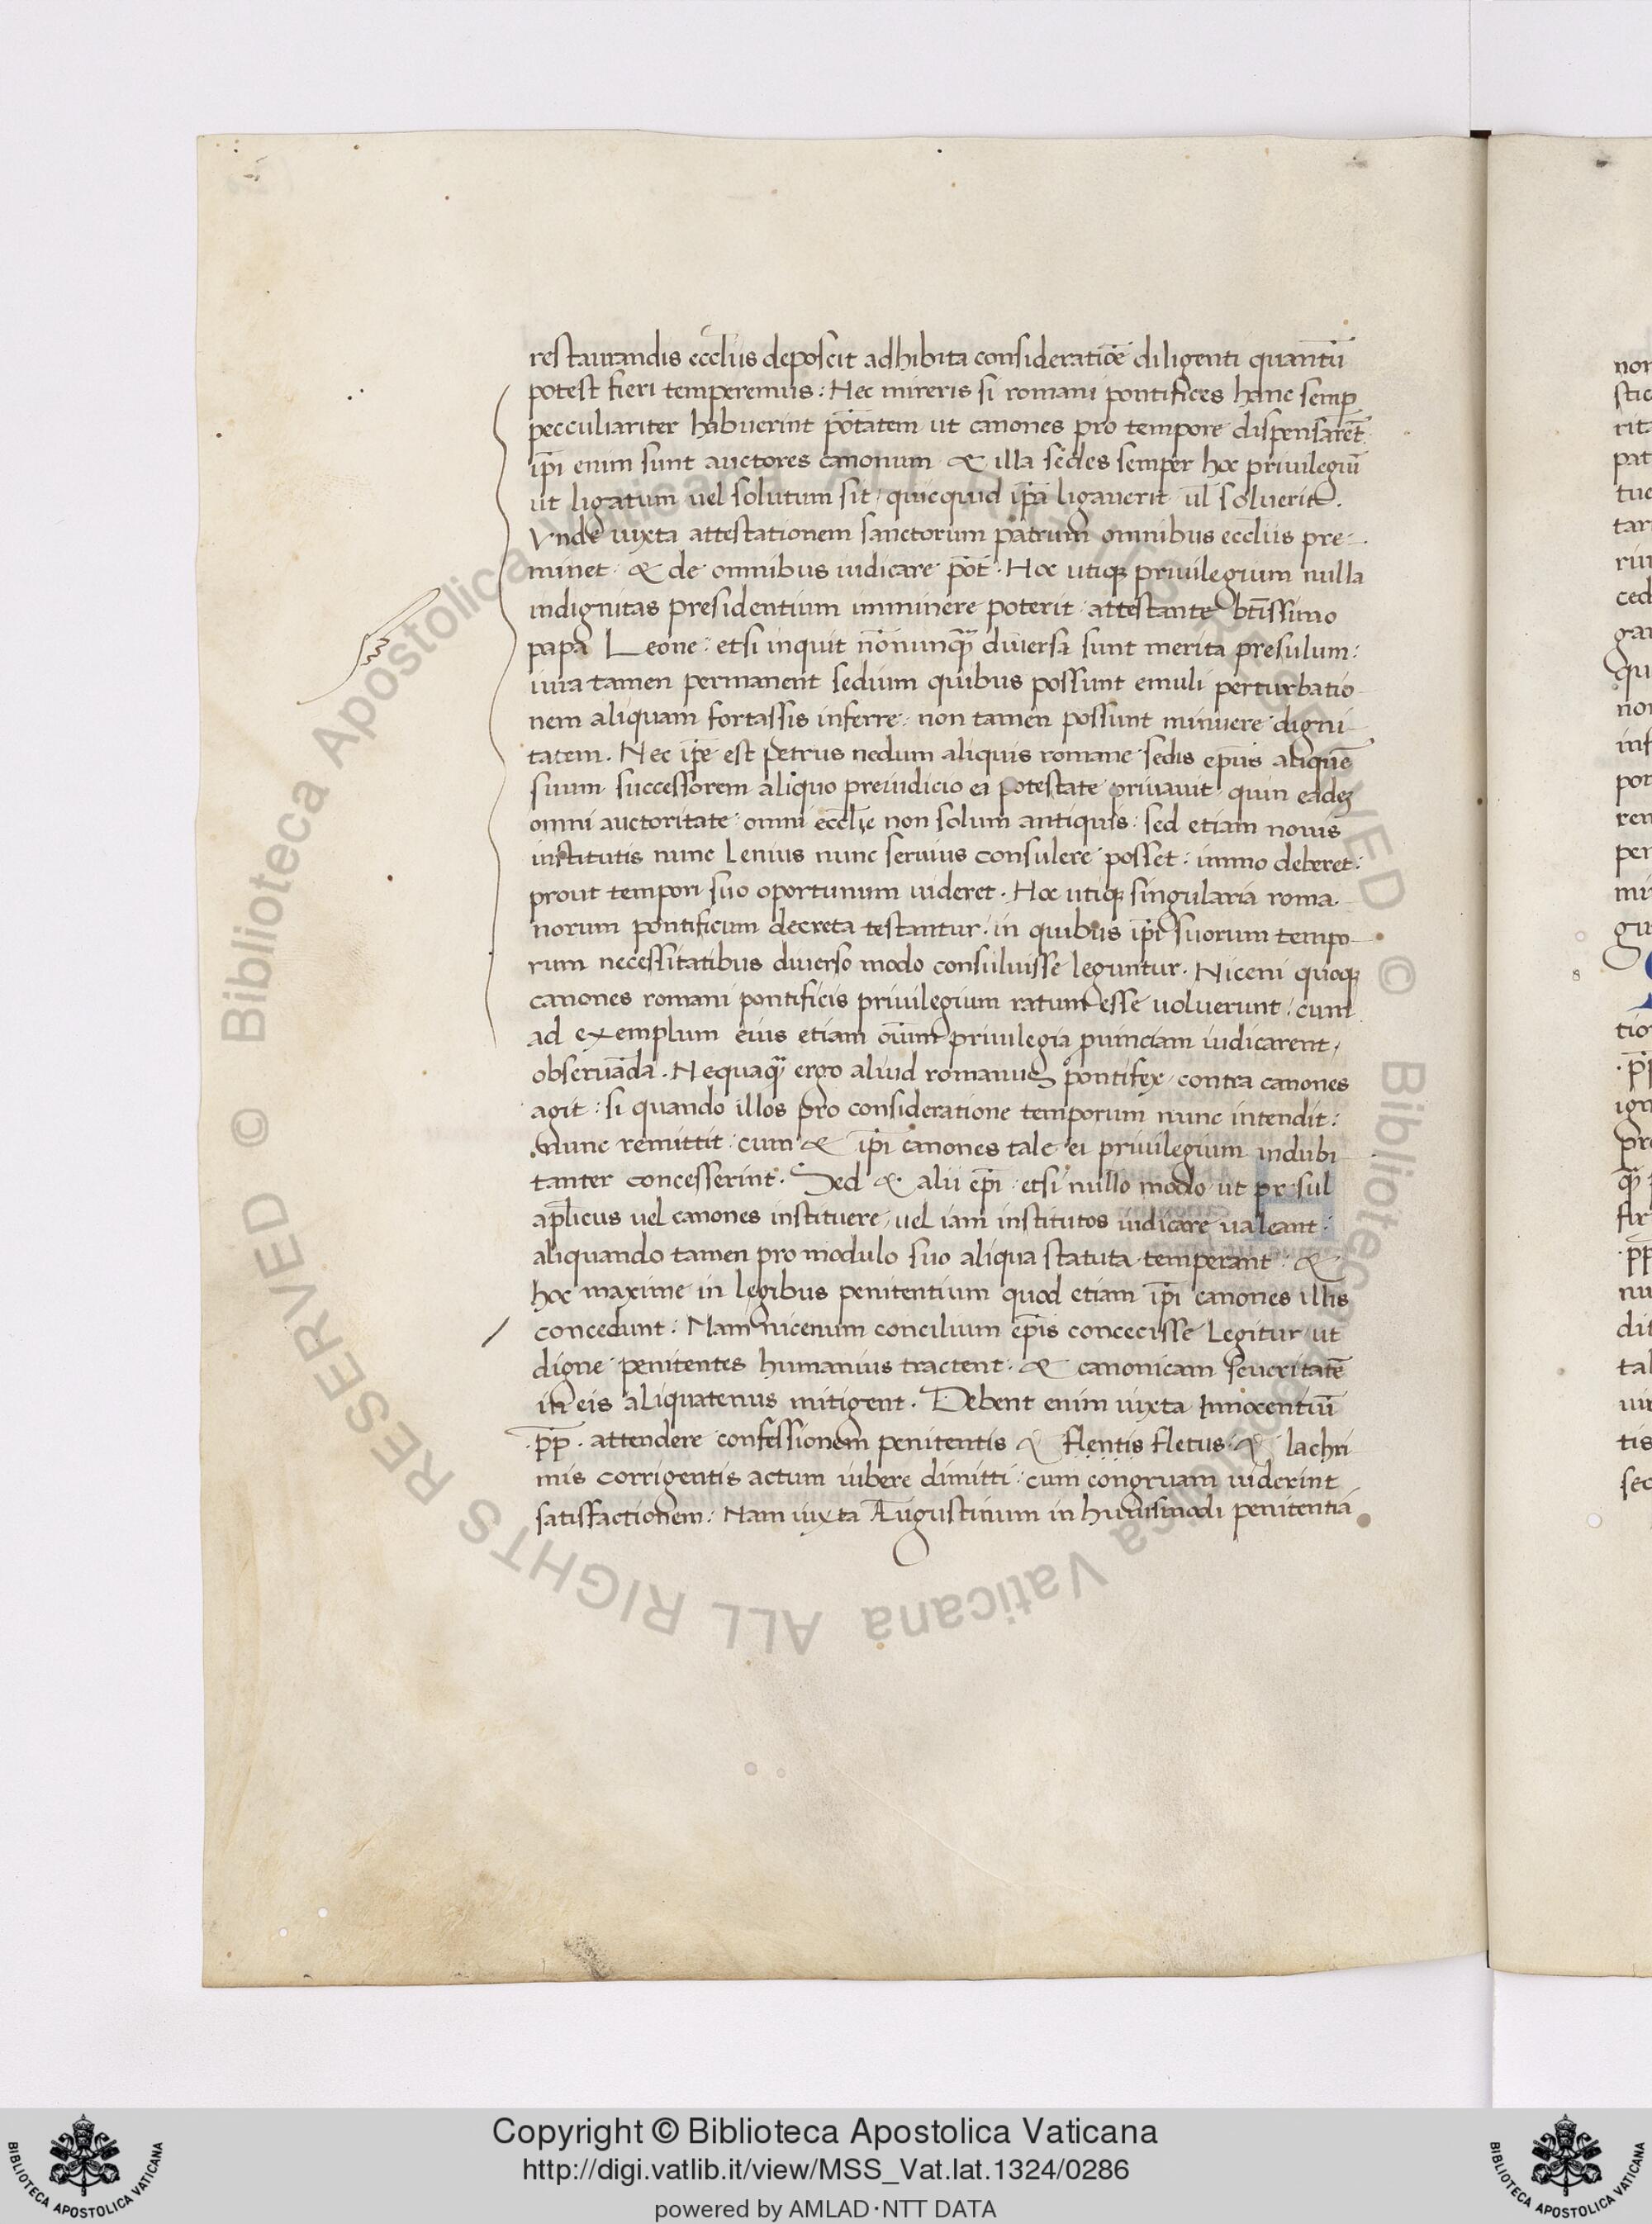 restaurandis eccl̄iis deposcit adhibita consideratiōe diligenti quantū
potest fieri temperemus: Nec mireris si romani pontifices hanc semꝑ
pecculiariter habuerint pōtatem ut canones pro tempore dispensarēt
ip̄i enim sunt auctores canonum & illa sedes semper hoc privilegiū
ut ligatum vel solutum sit, quicquid ip̄a ligaverit ul̄ solverit.
Vnde iuxta attestationem sanctorum patrum omnibus eccliis pre-
minet & de omnibus iudicare pōt. Hoc utiqꝫ privilegium nulla
indignitas presidentium imminere poterit attestante bt̄issimo
papa Leone: etsi inquit nōnunqᷓ diversa sunt merita presulum:
iura tamen permanent sedium quibus possunt emuli perturbatio-
nem aliquam fortassis inferre: non tamen possunt minuere digni-
tatem. Nec ip̄e est petrus nedum aliquis romane sedis ep̄us aliquē
suum successorem aliquo preiudicio ea potestate privavit quin eadeꝫ
omni auctoritate omni eccl̄ie non solum antiquis: sed etiam novis
institutis nunc lenius nunc servius consulere posset: immo deberet:
prout tempori suo oportunum videret. Hoc utiqꝫ singularia roma-
norum pontificum decreta testantur: in quibus ip̄i suorum tempo-
rum necessitatibus diverso modo consuluisse leguntur. Niceni quoqꝫ
canones romani pontificis privilegium ratum esse voluerunt: cum
ad exemplum eius etiam privilegia iudicarent,
observāda. Nequaqᷓ ergo aliud romanus pontifex contra canones
agit: si quando illos pro consideratione temporum nunc intendit:
nunc remittit cum & ip̄i canones tale ei privilegium indubi-
tanter concesserint. Sed & alii ep̄i etsi nullo modo ut presul
apl̄icus vel canones instituere, vel iam institutos iudicare valeant:
aliquando tamen pro modulo suo aliqua statuta temperant: &
hoc maxime in legibus penitentium quod etiam ip̄i canones illis
concedunt: Nam nicenum concilium ep̄is concecisse legitur ut
digne penitentes humanius tractent & canonicam severitatē
in eis aliquatenus mitigent. Debent enim iuxta Innocentiū
.pp̄. attendere confessionem penitentis & flentis fletus & lachri
mis corrigentis actum iubere dimitti: cum congruam viderint
satisfactionem: Nam iuxta Augustinum in huiusmodi penitentiā
nor
stic
rita
pat
tue
tar
riu
ced
gar
qu
nor
inf
pot
ren
per
mi
gu
8
tio
.pp̄
ign
pre
qᷓ
fir
.pp̄
nu
dit
tal
uir
tis
sec
© Biblioteca Apostolica Vaticana ALL RIGHTS RESERVED © Biblioteca Apostolica Vaticana ALL RIGHTS RESERVED
Copyright © Biblioteca Apostolica Vaticana
http://digi.vatlib.it/view/MSS_Vat.lat.1324/0286
powered by AMLAD·NTT DATA
BIBLIOTECA APOSTOLICA VATICANA
BIBLIOTECA APOSTOLICA VATICANA